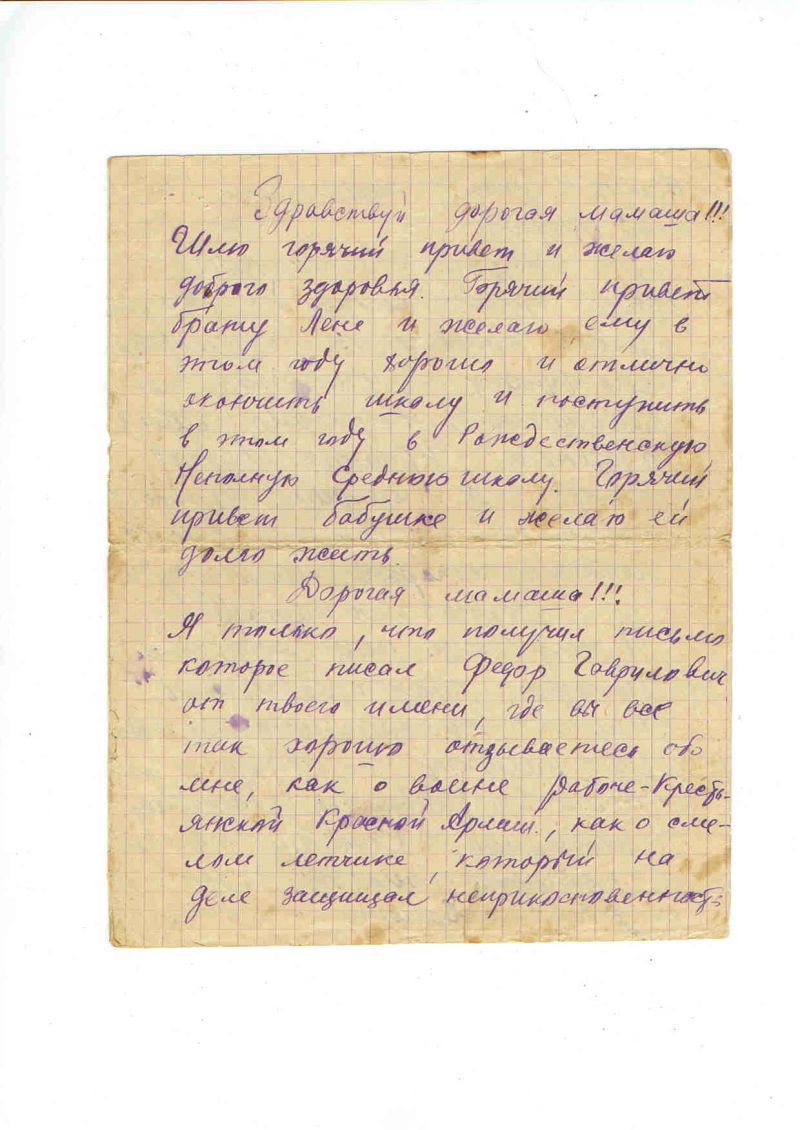 Здравствуй дорогая мамаша!!!
Шлю горячий привет и желаю
доброго здоровья. Горячий привет
брату Лене и желаю ему в
этом году хорошо и отлично
окончить школу и поступить
в этом году в Рождественскую
Неполную Среднюю школу. Горячий
привет бабушке и желаю ей
долго жить.
Дорогая мамаша!!!
Я только, что получил письмо
которое писал Федор Гаврилович
от твоего имени, где вы все
так хорошо отзываетесь обо
мне, как о воине Рабоче-Кресть-
янской Красной Армии, как о сме-
лом летчике, который на
деле защищал неприкосновенность